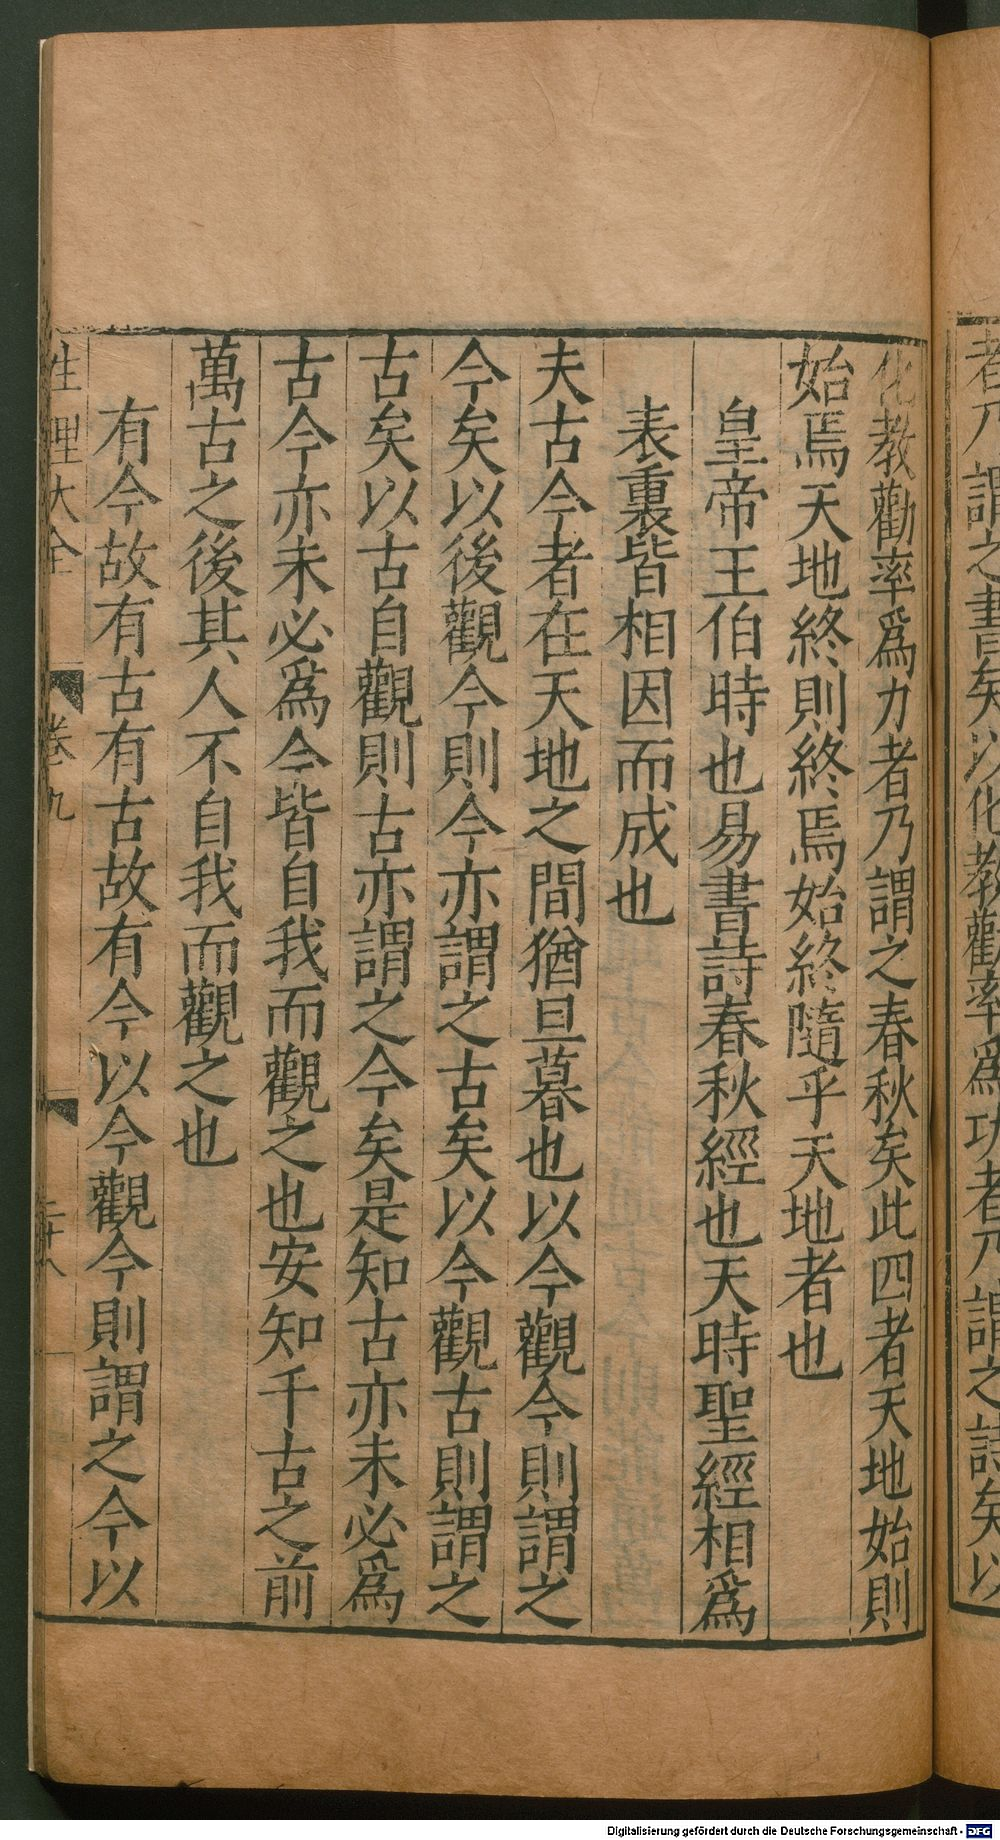 者乃謂之書矣以化教勸率爲功者乃謂之詩矣以
化教勸率爲力者乃謂之春秋矣此四者天地始則
始焉天地終則終焉始終隨乎天地者也
皇帝王伯時也易書詩春秋經也天時聖經相爲
表裏皆相因而成也
夫古今者在天地之間猶旦暮也以今觀今則謂之
今矣以後觀今則今亦謂之古矣以今觀古則謂之
古矣以古自觀則古亦謂之今矣是知古亦未必爲
古今亦未必爲今皆自我而觀之也安知千古之前
萬古之後其人不自我而觀之也
有今故有古有古故有今以今觀今則謂之今以
性理大全 卷九 二十八
Digitalisierung gefördert durch die Deutsche Forschungsgemeinschaft - DFG